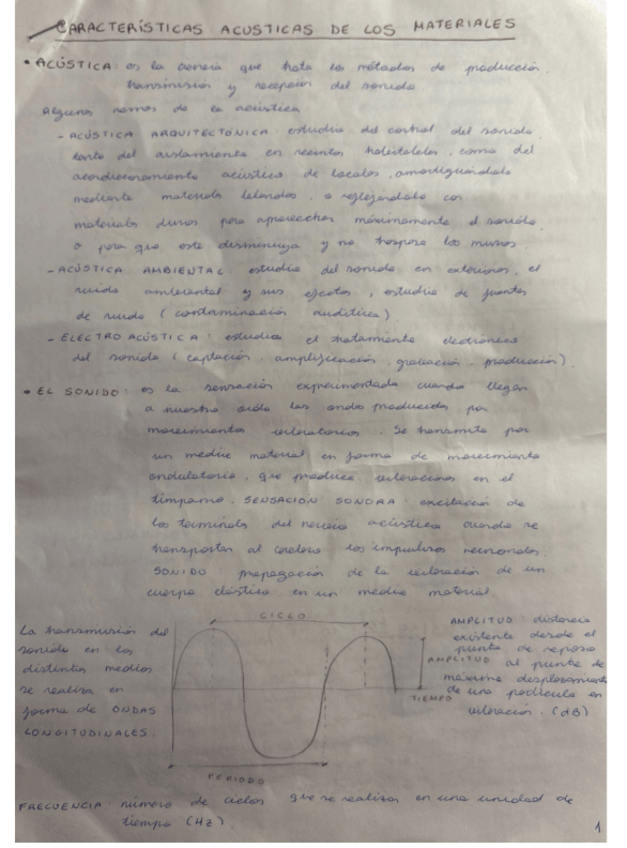 CARACTERÍSTICAS ACUSTICAS DE LOS MATERIALES
• ACÚSTICA: es la ciencia que trata los métodos de producción,
transmisión y recepción del sonido
Algunas ramas de la acústica
- ACÚSTICA ARQUITECTÓNICA: estudia del control del sonido,
tanto del aislamiento en recintos habitables, como del
acondicionamiento acústico de locales, amortiguándolo
mediante materiales blandos, o reflejándolo con
materiales duros para aprovechar máximamente el sonido,
o para que este disminuya y no traspase los muros.
- ACÚSTICA AMBIENTAL: estudia del sonido en exteriores, el
ruido ambiental y sus efectos, estudio de fuentes
de ruido (contaminación auditiva).
- ELECTRO ACÚSTICA: estudia el tratamiento electrónico
del sonido (captación, amplificación, grabación, producción).
• EL SONIDO: es la sensación experimentada cuando llegan
a nuestro oído las ondas producidas por
movimientos vibratorios. Se transmite por
un medio material en forma de movimiento
ondulatorio, que produce vibraciones en el
tímpano. SENSACIÓN SONORA: excitación de
los terminales del nervio acústico cuando se
transportan al cerebro los impulsos neuronales.
SONIDO: propagación de la vibración de un
cuerpo elástico en un medio material
La transmisión del
sonido en los
distintos medios
se realiza en
forma de ONDAS
LONGITUDINALES.
CICLO
AMPLITUD
TIEMPO
PERIODO
AMPLITUD: distancia
existente desde el
punto de reposo
al punto de
máximo desplazamiento
de una partícula en
vibración. (dB)
FRECUENCIA: número de ciclos que se realizan en una unidad de
tiempo (Hz)
1